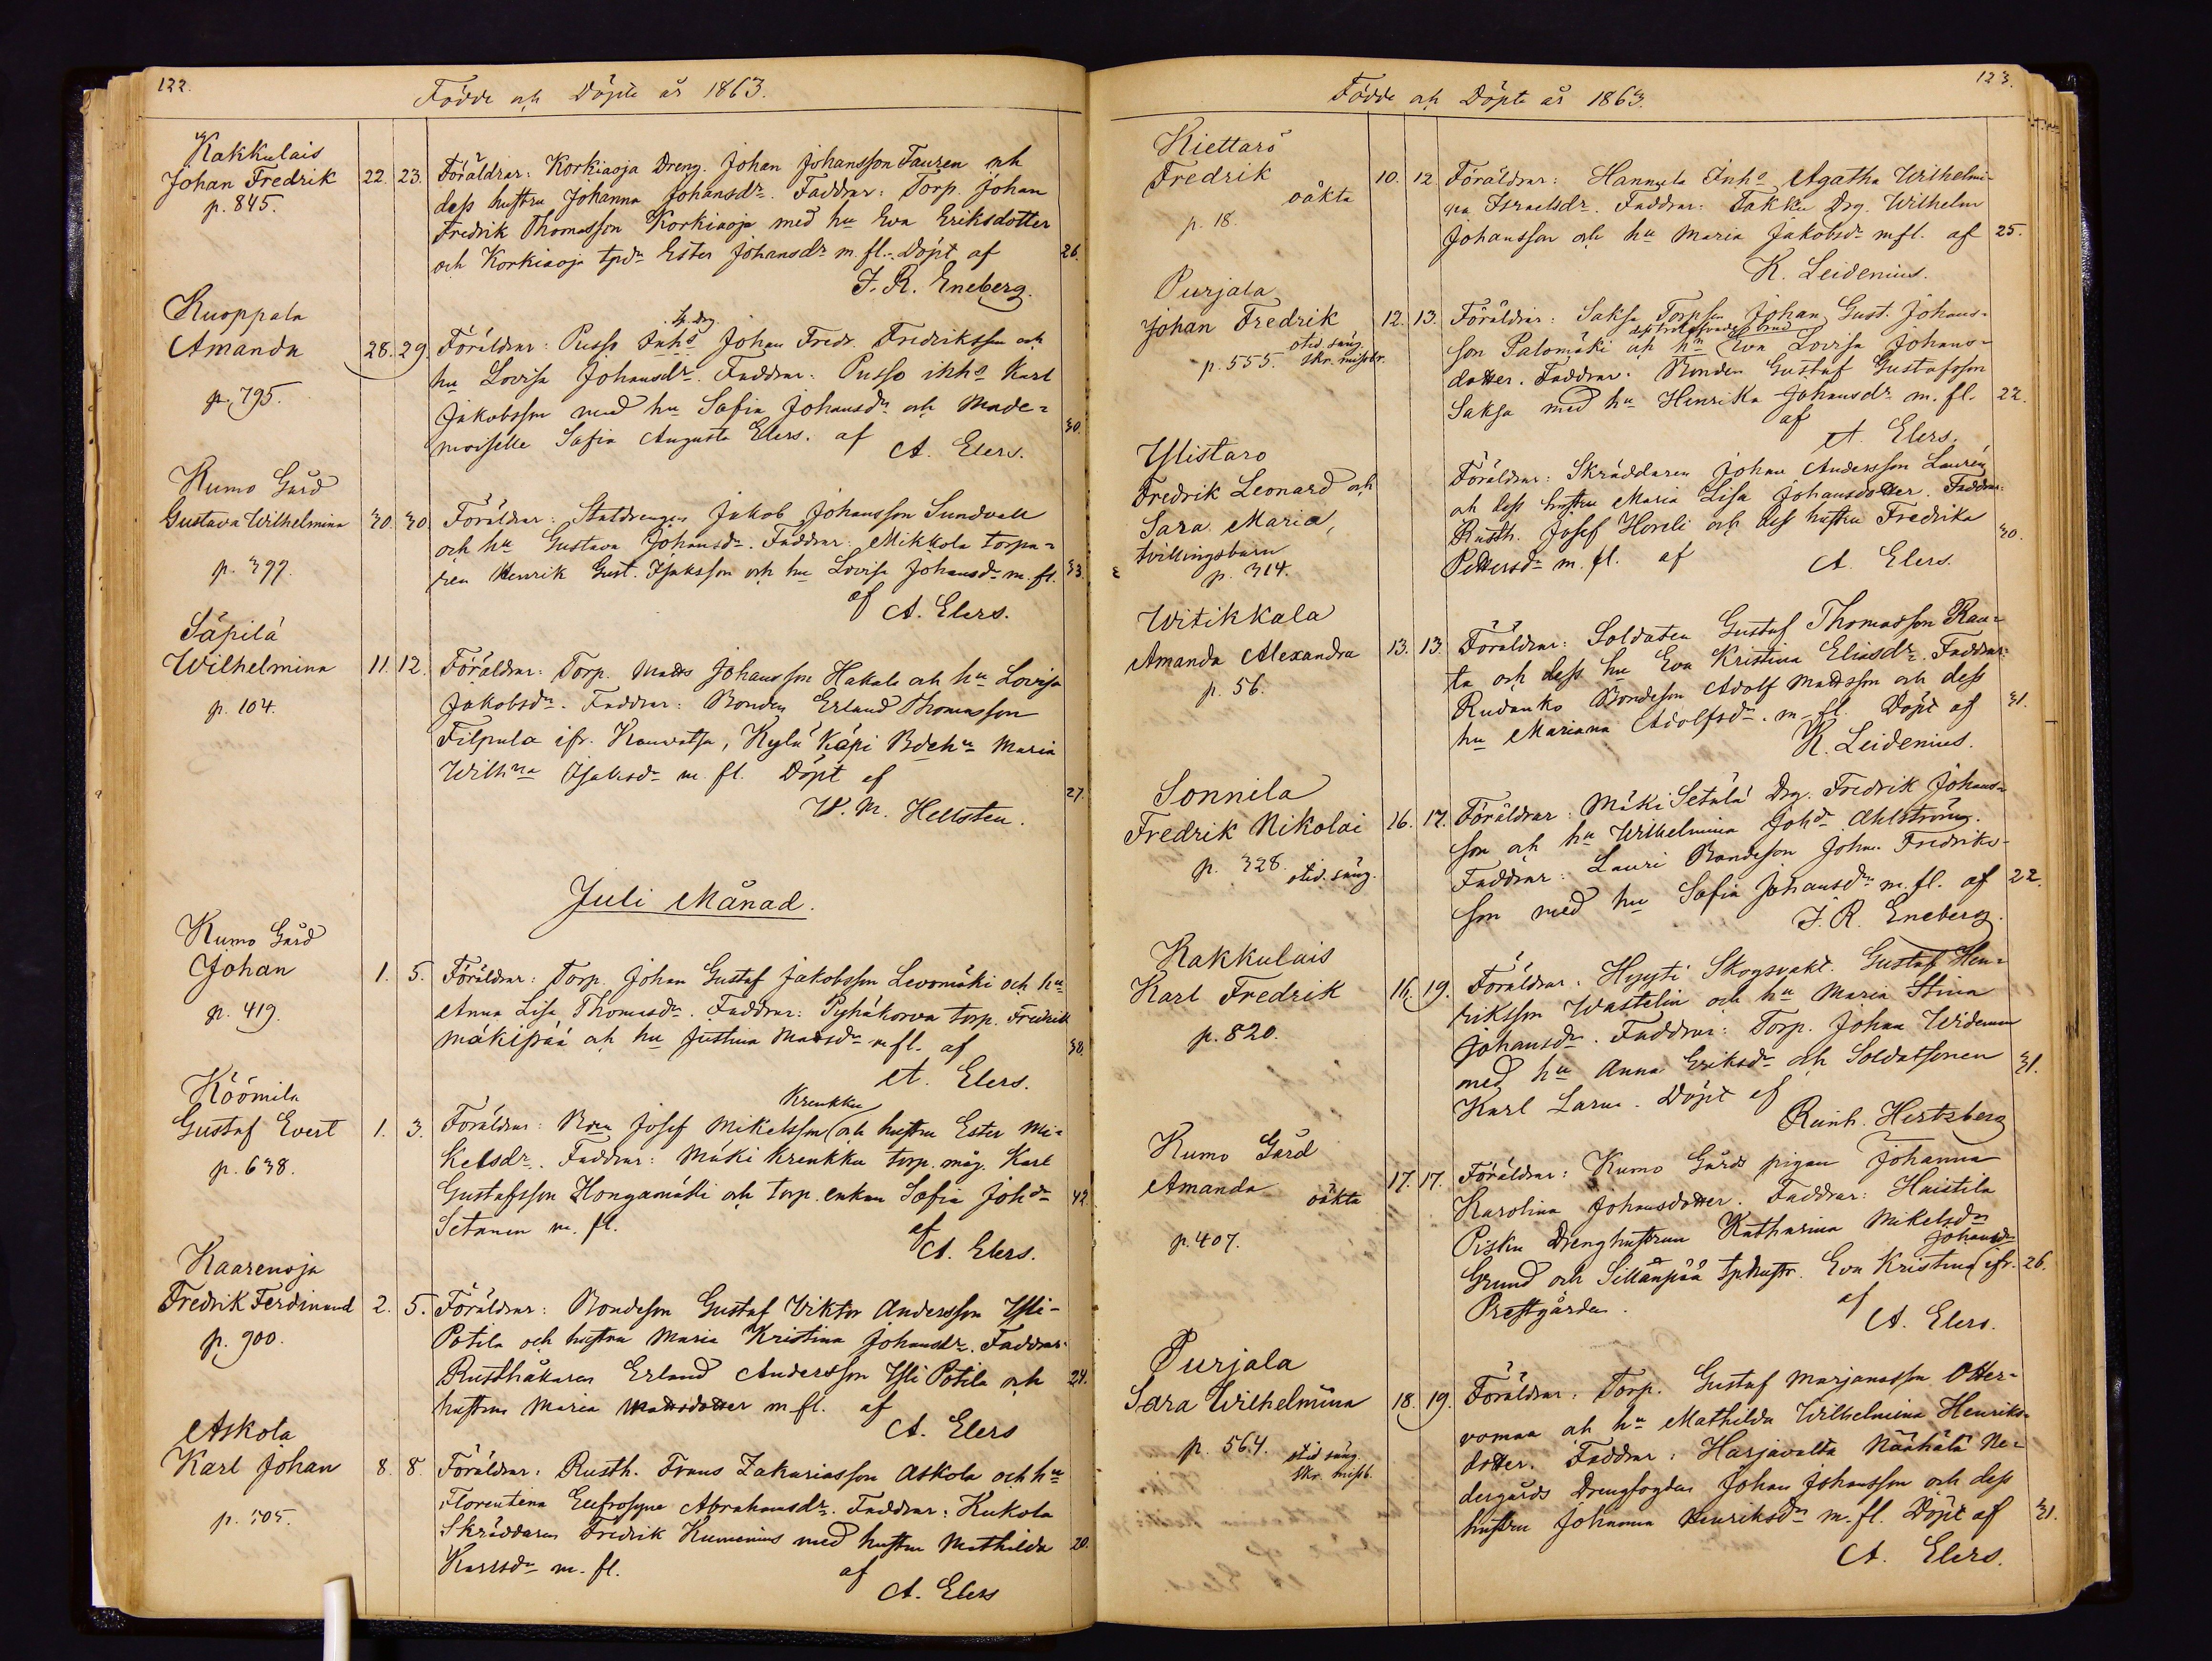 122.
Födde och Döpte år 1863.
Kakkulais
Johan Fredrik
p. 845.
22. 23. Föräldrar: Korkiaoja Dreng. Johan Johansson Tauren och
dess hustru Johanna Johansdr. Faddrar: Torp. Johan
Fredrik Thomasson Korkiaoja med hu Eva Eriksdotter
och Korkiaoja tpdr Ester Johansdr m. fl. Döpt af 26.
F. R. Eneberg.
Kuoppala
Amanda
p. 795.
tp. drg
28. 29. Föräldrar: Pusso Inhs Johan Fredr. Fredriksson och
hu Lovisa Johansdr. Faddrar: Pusso ihhs Karl
Jakobsson med hu Sofia Johansdr och Made-
moiselle Sofia Augusta Elers. af 30.
A. Elers.
Kumo Gård
Gustava Wilhelmina
p. 397.
30. 30. Föräldrar: Statdrengen Jakob Johansson Sundvall
och hu Gustava Johansdr. Faddrar: Mikkola torpa-
ren Henrik Gust. Isaksson och hu Lovisa Johansdr m. fl. 33.
af A. Elers.
Säpilä
Wilhelmina
p. 104.
11. 12. Föräldrar: Torp. Matts Johansson Hakala och hu Lovisa
Jakobsdr. Faddrar: Bonden Erland Thomasson
Filpula ifr. Kauvatsa, Kylä Käpi Bdehu Maria
Wilhna Isaksdr m. fl. Döpt af 27.
W. M. Hellsten.
Juli Månad.
Kumo Gård
Johan
p. 419.
1. 5. Föräldrar: Torp. Johan Gustaf Jakobsson Levomäki och hu
Anna Lisa Thomasdr. Faddrar: Pyhäkorva torp. Fredrik
Mäkipää och hu Justina Mattsdr m fl. af 38.
A. Elers.
Köömilä
Gustaf Evert
p. 638.
Krenkku
1. 3. Föräldrar: Bon Josef Mikelsson och hustru Ester Mi-
kelsdr. Faddrar: Mäki Krenkku torp. måg. Karl
Gustafsson Hongamäki och torp. enkan Sofia Johdr 42.
Setanen m. fl. af
A. Elers.
Kaarenoja
Fredrik Ferdinand
p. 900.
2. 5. Föräldrar: Bondeson Gustaf Viktor Andersson Yli-
Potila och hustru Maria Kristina Johansdr. Faddrar:
Rusthållaren Erland Andersson Yli Potila och 24.
hustru Maria Mattsdotter m fl. af
A. Elers
Askola
Karl Johan
p. 505.
8. 8. Föräldrar: Rusth. Frans Zakariasson Askola och hu
Florentina Eufrosyne Abrahamsdr. Faddrar: Kukola
Skräddaren Fredrik Kumenius med hustru Mathilda 20.
Karlsdr m. fl. af
A. Elers
123.
Födde och Döpte år 1863.
Kiettarö
Fredrik
oäkta
p. 18.
10. 12 Föräldrar: Hannula Inhs Agatha Wilhelmi-
na Israelsdr. Faddrar: Takku Drg. Wilhelm
Johansson och hu Maria Jakobsdr m fl. af 25.
K. Leidenius.
Purjala
Johan Fredrik
otid. säng.
p. 555. skr. misstr.
12. 13. Föräldrar: Saksa Torpson Johan Gust. Johans-
son Palomäki och hn Eva Lovisa Johans-
dotter. Faddrar: Bonden Gustaf Gustafsson
Saksa med hu Henrika Johansdr m. fl. 22.
af
A. Elers.
Ylistaro
Fredrik Leonard och
Sara Maria,
tvillingsbarn
p. 314.
Föräldrar: Skräddaren Johan Andersson Laurén
och dess hustru Maria Lisa Johansdotter. Faddrar:
Rusth. Josef Horeli och dess hustru Fredrika 30.
Pettersdr m. fl. af
A. Elers.
Witikkala
Amanda Alexandra
p. 56.
13. 13. Föräldrar: Soldaten Gustaf Thomasson Rau-
ta och dess hu Eva Kristina Eliasdr. Faddrar:
Rudanko Bondeson Adolf Mattsson och dess
hu Mariana Adolfsdr. m fl. Döpt af 31.
K. Leidenius.
Sonnila
Fredrik Nikolai
p. 328. otid. säng.
16. 17. Föräldrar: Mäki Setälä Drg. Fredrik Johans-
son och hu Wilhelmina Johdr Ahlström.
Faddrar: Lauri Bondeson Johan Fredriks-
son med hu Sofia Johansdr m. fl. af 22.
F. R. Eneberg.
Kakkulais
Karl Fredrik
p. 820.
16. 19. Föräldrar: Hyyti Skogsvakt. Gustaf Hen-
riksson Wastelin och hu Maria Stina
Johansdr. Faddrar: Torp. Johan Wideman
med hu Anna Eriksdr och Soldatsonen 31.
Karl Larm. Döpt af
Reinh. Hertzberg
Kumo Gård
Amanda
oäkta
p. 407.
17. 17. Föräldrar: Kumo Gårds pigan Johanna
Karolina Johansdotter. Faddrar: Haistila
Pisku Drenghustrun Katharina Mikelsdr
Johansdr
Grund och Sillanpää tphustr. Eva Kristina ifr. 26.
Prestgården. af
A. Elers.
Purjala
Sara Wilhelmina
p. 564. otid säng.
skr. missb.
18. 19. Föräldrar: Torp. Gustaf Marjanasson Otter-
vomaa och hu Mathilda Wilhelmina Henriks-
dotter. Faddrar: Harjavalta Näähälä Ne-
dergårds Drengfogden Johan Johansson och dess
hustru Johanna Henriksdr m. fl. Döpt af 31.
A. Elers.